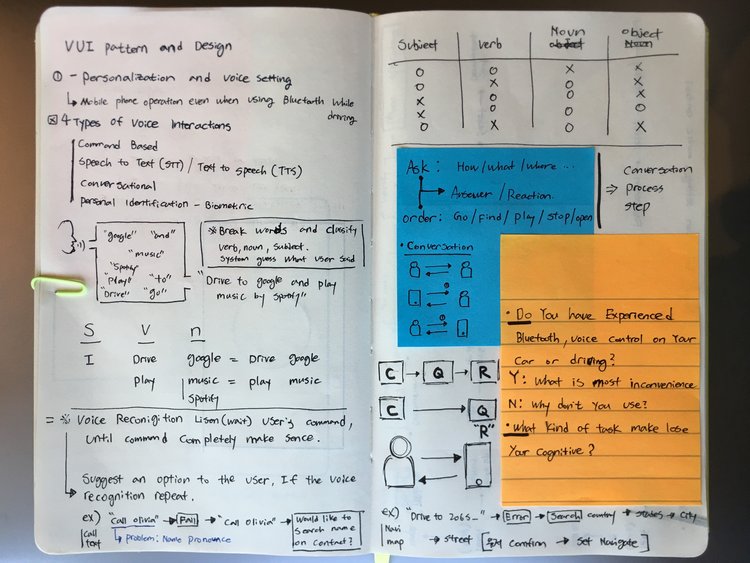 VUI pattern and Design
① - Personalization and voice setting
↳ Mobile phone operation even when using Bluetooth while
driving.
☒ 4 Types of Voice Interactions
Command Based
Speech to Text (STT) / Text to Speech (TTS)
Conversational
Personal Identification - Biometric
"google" "and"
"music"
"Spotify"
"Play" "to"
"Drive" "go"
※ Break words and classify
verb, noun, subject.
System guess what user said
"Drive to google and play
music by Spotify"
S V n
I Drive google = Drive google
play music = play music
Spotify
= ※ Voice Reconigition Lisen(wait) user's command,
until command completely make sence.
Suggest an option to the user, If the voice
recognition repeat.
ex) "Call olivia" → FAIL → "call olivia" → Would like to
search name
on contact?
Call
text
↳ problem: Name pronounce
Subject verb Noun object
object Noun
O O X X
O X O X
X O O X
X O O O
O X O X
Ask: How/what/where...
→ Answer / Reaction.
order: Go/find/play/stop/open
⇒ Conversation
process
step
• Conversation
C → Q → R
C → Q
"R"
• Do You have Experienced
Bluetooth, voice control on Your
Car or driving?
Y: what is most inconvenience
N: why don't you use?
• What kind of task make lose
Your cognitive?
ex) "Drive to 2065_" → Error → Search country → states → City
Navi
map
→ street [ Comfirm → Set Navigate ]